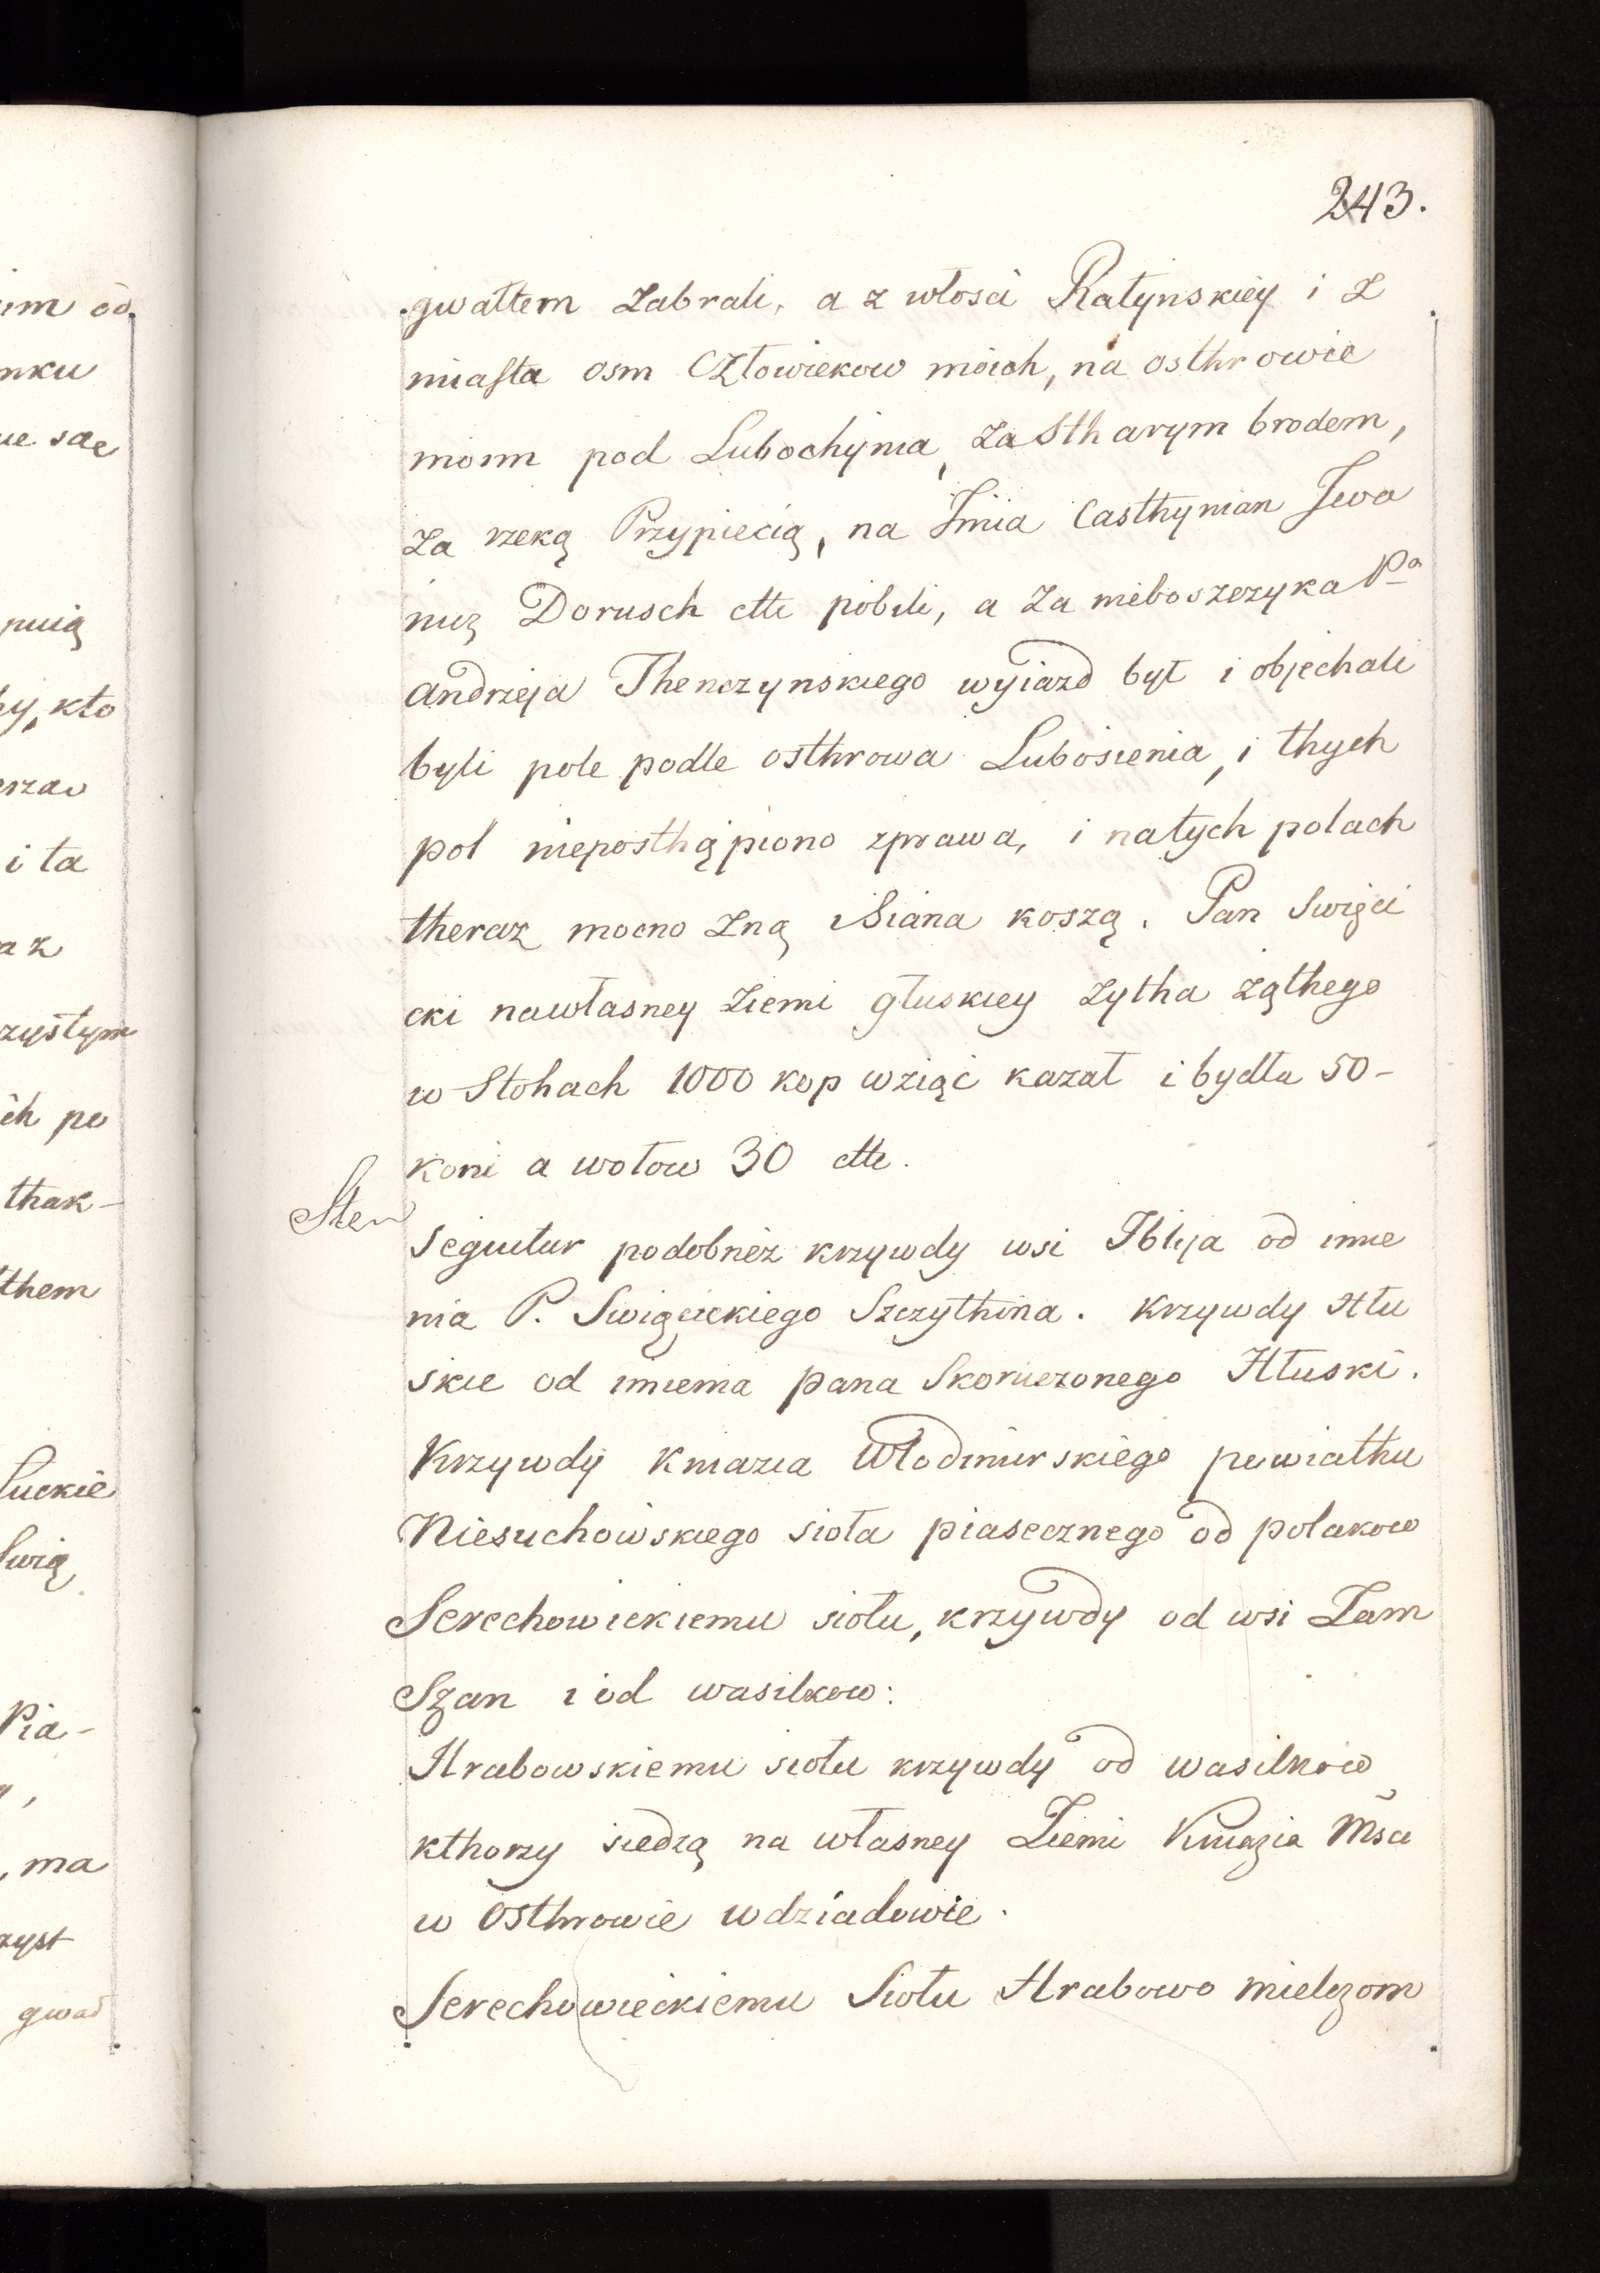 243.
gwałtem zabrali, a z włosci Ratynskiey i z
miasta osm Człowiekow moich, na osthrowie
moim pod Lubochynia, za Stharym brodem,
za rzeką Przypiecią, na Jmia Casthynian Jwa
nuz Dorusch etc pobili, a za nieboszczyka Pa
Andrzeja Thenczynskiego wyiazd był i objechali
byli pole podle osthrowa Lubosienia, i thych
pol nieposthąpiono zprawa, i natych polach
theraz mocno zną i Siana koszą. Pan Swięci
cki nawłasney ziemi głuskiey zytha ząthego
w Stohach 1000 kop wziąć kazał i bydła 50-
koni a wołow 30 etc.
Seguitur podobnez krzywdy wsi Tblija od imie
nia P. Swięcickiego Szczythina. Krzywdy Hłu
skie od imienia pana Skoruczonego Hłuski.
Krzywdy Kniazia Włodimirskiego powiathu
Niesuchowskiego sioła piasecznego od polakow
Serechowickiemu siołu, krzywdy od wsi Zam
Szan i od wasilkow:
Hrabowskiemu siołu krzywdy od wasilkow
kthorzy siedzą na własney Ziemi Kniazia Msci
w Osthrowie wdziadowie.
Serechowieckiemu Siołu Hrabowo mielczom
im od
nku
ue sae
puią
by, kto
i ta
a z
zystym
ch po
thak-
them
Łuckie
Swię
Pia-
, ma
zyst
gwał